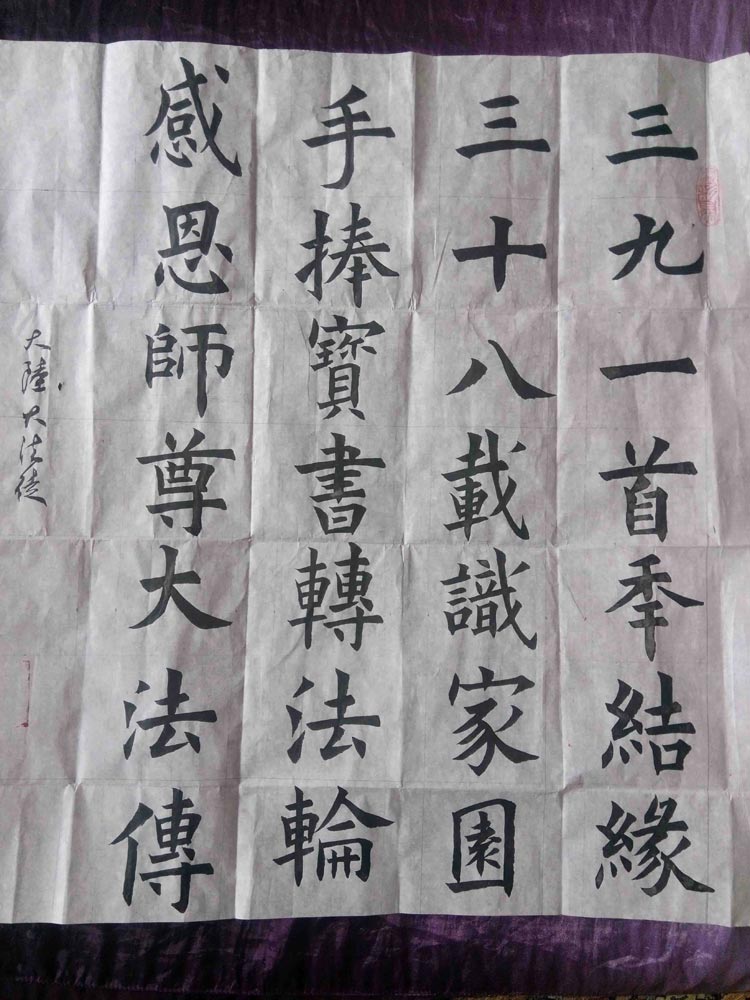 三九一首秊結緣
三十八載識家園
手捧寶書轉法輪
感恩師尊大法傳
大陸大法徒